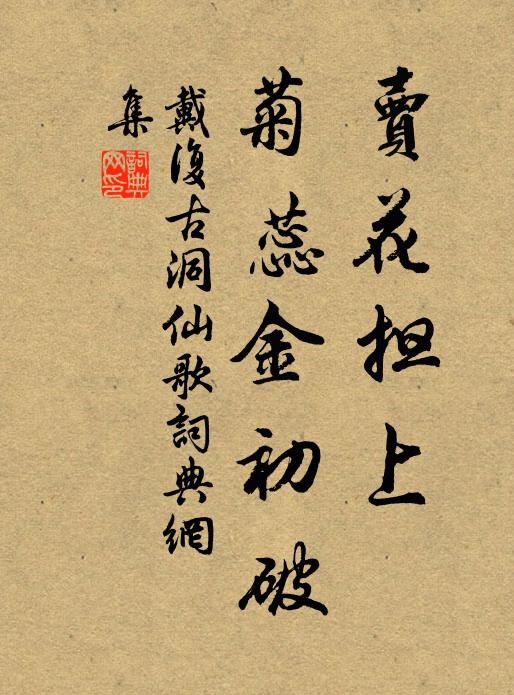 賣花担上
菊蕊金初破
戴復古洞仙歌詞典網
集
詞典
网印